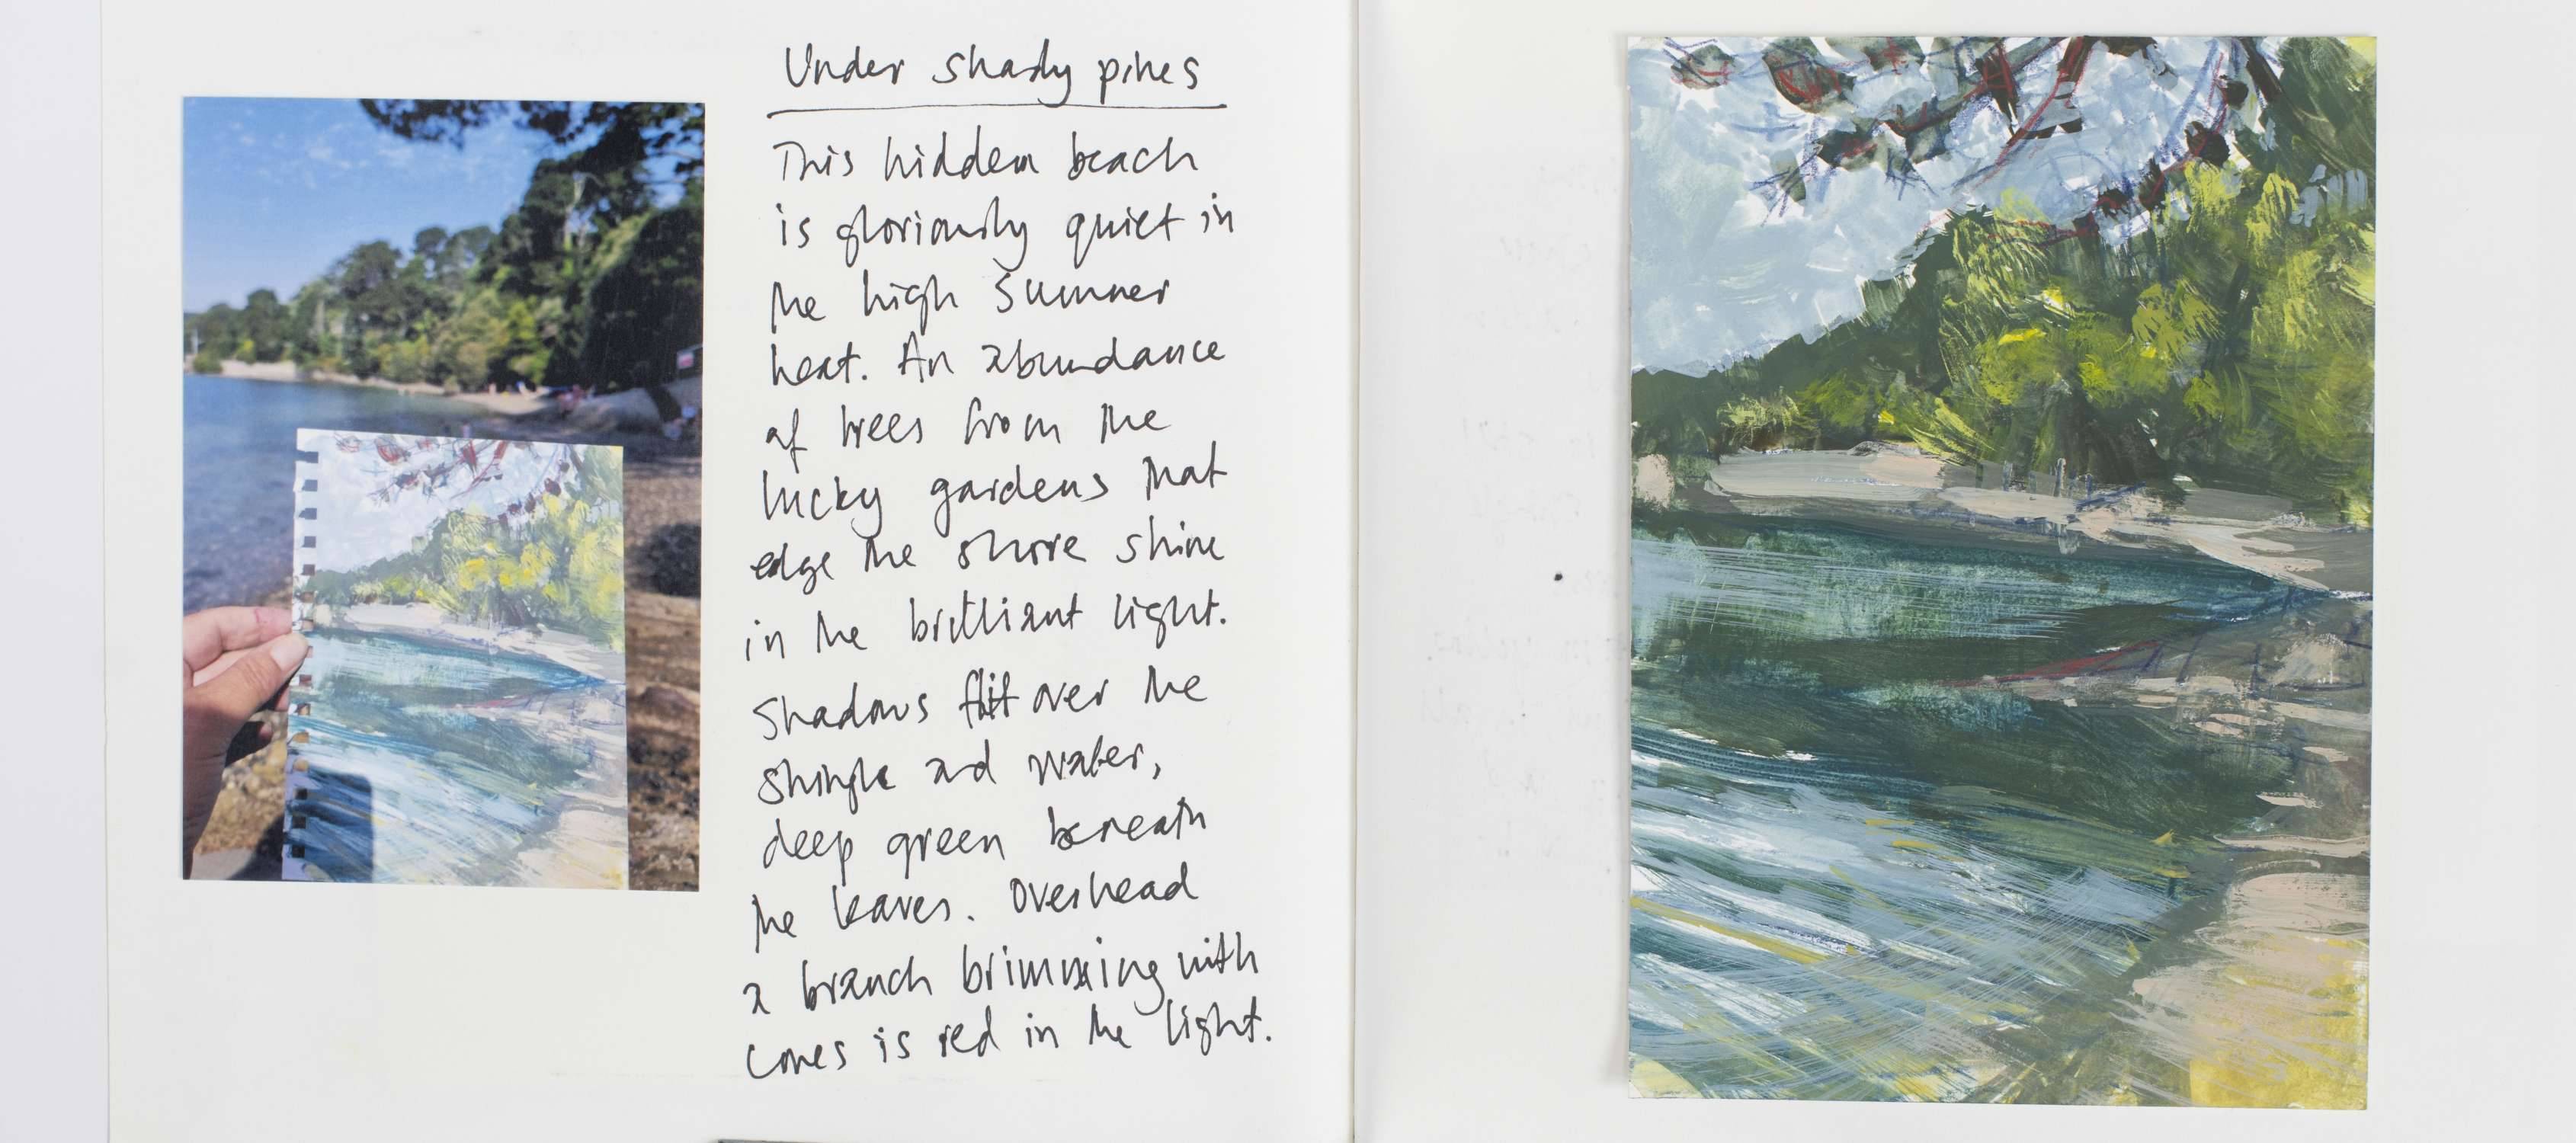 Under shady pines
This hidden beach
is gloriously quiet in
the high summer
heat. An abundance
of trees from the
lucky gardens that
edge the shore shine
in the brilliant light.
Shadows flit over the
shingle and water,
deep green beneath
the leaves. Overhead
a branch brimming with
cones is red in the light.